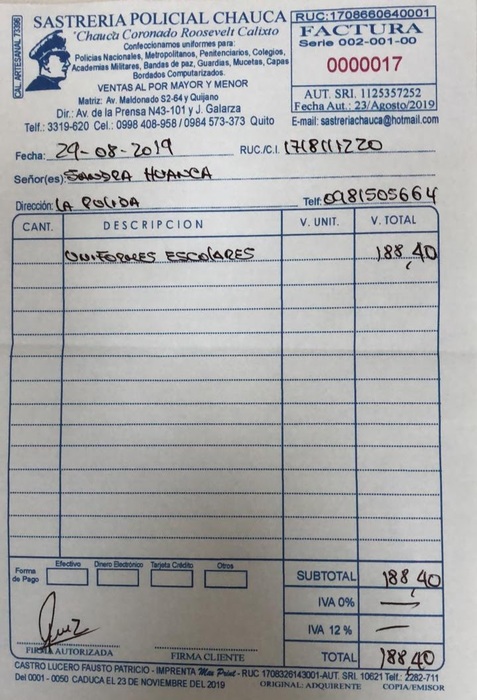 CAL. ARTESANAL 73396
SASTRERIA POLICIAL CHAUCA
'Chauca Coronado Roosevelt Calixto
Confeccionamos uniformes para:
Policias Nacionales, Metropolitanos, Penitenciarios, Colegios,
Academias Militares, Bandas de paz, Guardias, Mucetas, Capas
Bordados Computarizados.
VENTAS AL POR MAYOR Y MENOR
Matriz: Av. Maldonado S2-64 y Quijano
Dir.: Av. de la Prensa N43-101 y J. Galarza
Telf.: 3319-620 Cel.: 0998 408-958 / 0984 573-373 Quito
RUC:1708660640001
FACTURA
Serie 002-001-00
0000017
AUT. SRI. 1125357252
Fecha Aut.: 23/Agosto/2019
E-mail: sastreriachauca@hotmail.com
Fecha: 29-08-2019 RUC./C.I.
Señor(es): SANDRA HUANCA
Dirección: LA Telf: 0981505664
CANT. DESCRIPCION V. UNIT. V. TOTAL
UNIFORMES ESCOLARES 188,40
Forma de Pago Efectivo Dinero Electrónico Tarjeta Crédito Otros
SUBTOTAL 188,40
IVA 0% —
IVA 12 % —
TOTAL 188,40
FIRMA AUTORIZADA FIRMA CLIENTE
CASTRO LUCERO FAUSTO PATRICIO - IMPRENTA Max Print - RUC 1708326143001-AUT. SRI. 10621 Telf.: 2282-711
Del 0001 - 0050 CADUCA EL 23 DE NOVIEMBRE DEL 2019 ORIGINAL: ADQUIRENTE COPIA/EMISOR